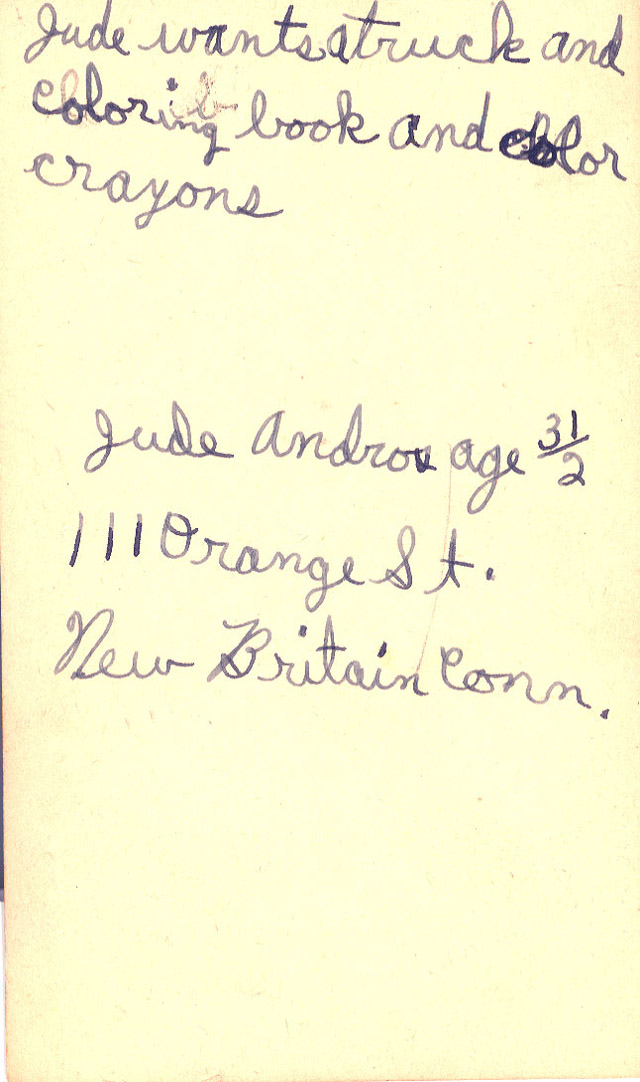 Jude wants a truck and
coloring book and color
crayons
Jude Andros age 3 1/2
111 Orange St.
New Britain Conn.